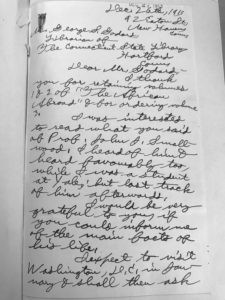 Dec. 26th, 1911
92 Eaton St.,
New Haven,
Conn.
Mr. George S. Godard
Librarian
The Connecticut State Library
Hartford
Conn.
Dear Mr. Godard:
I thank
you for retaining volumes
1 & 2 of "The African
Abroad" & for ordering volume
I was interested
to read what you said
of Prof. John J. Small-
wood. I heard of him &
heard favourably too
while I was a student
at Yale, but lost track
of him afterwards.
I would be very
grateful to you, if
you could inform me
of the main facts of
his life.
I expect to visit
Washington, D.C., in Jan-
uary & shall then ask